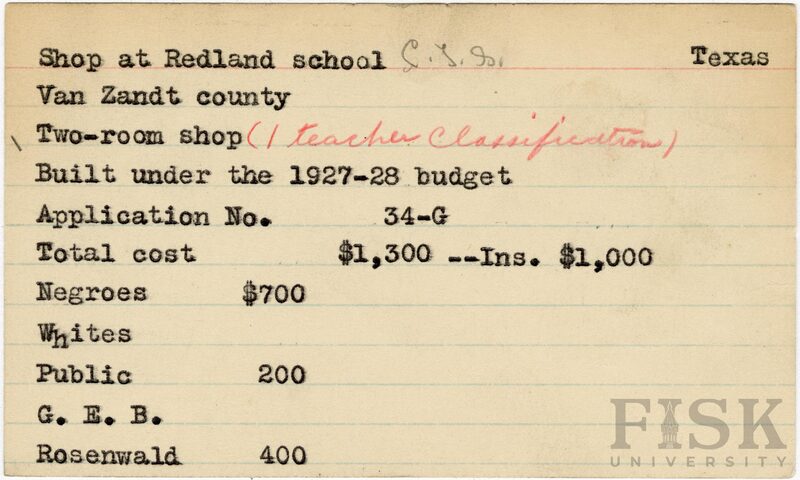 Shop at Redland school C.T.S. Texas
Van Zandt county
Two-room shop (1 teacher classification)
Built under the 1927-28 budget
Application No. 34-G
Total cost $1,300 --Ins. $1,000
Negroes $700
Whites
Public 200
G. E. B.
Rosenwald 400
FISK
UNIVERSITY